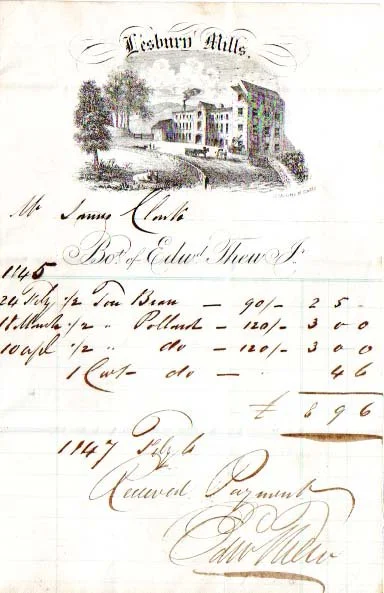 Lesbury Mills.
Mr James Clark
Bot. of Edwd. Thew Jr
1845
24 Feby 1/2 Ton Bran — 90/- 2 5 -
18 March 1/2 " Pollard — 120/- 3 0 0
10 apl 1/2 " do — 120/- 3 0 0
1 Cwt do — 4 6
£ 8 9 6
1847 Feby 6
Received Payment
Edw Thew